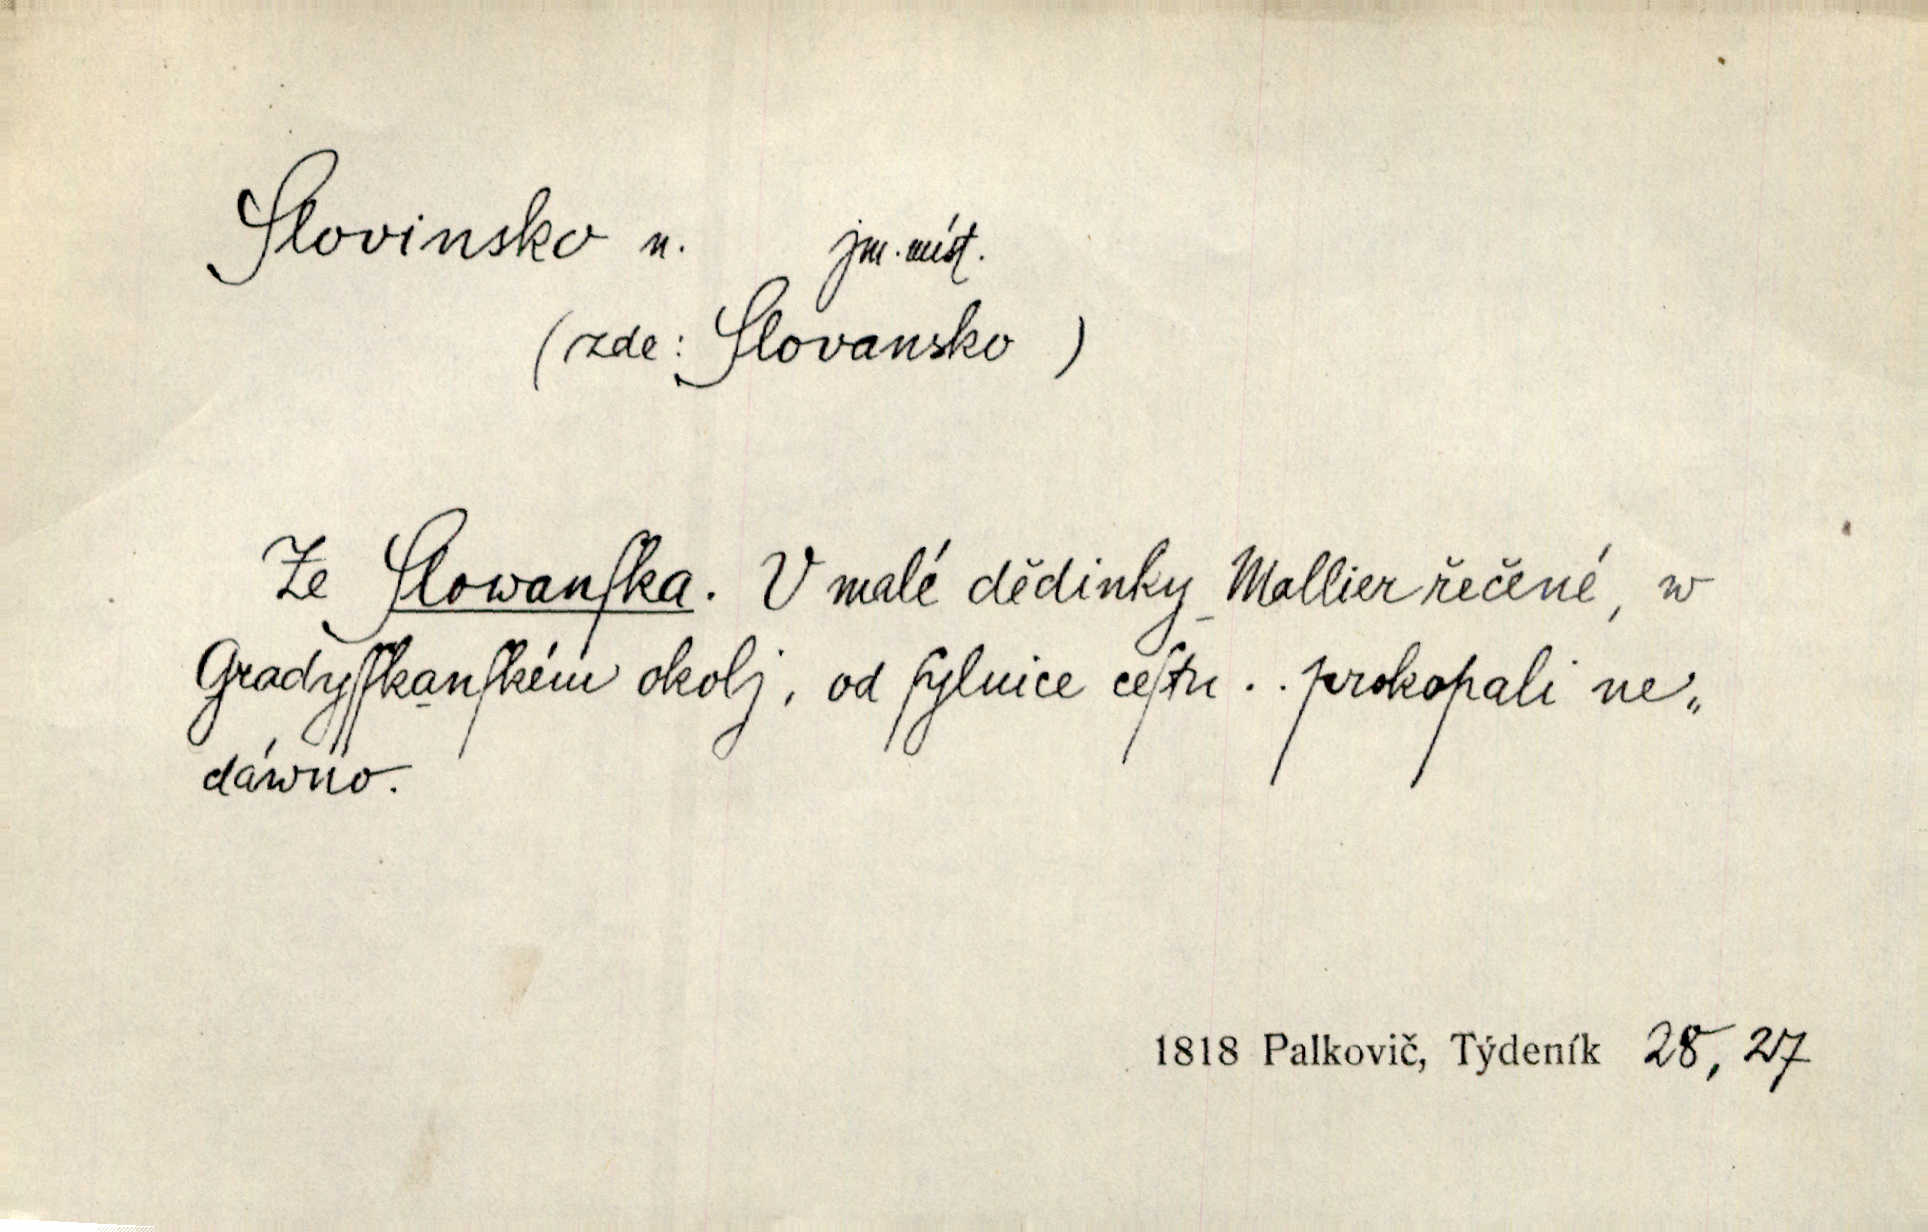 Slovinsko n. jm. míst.
(zde: Slovansko )
Ze Slowanſka. V malé dědinky Mallier řečené, w
Gradyſſkanſkém okolj, od ſylnice ceſtu .. prokopali ne„
dáwno.
1818 Palkovič, Týdeník 28, 27